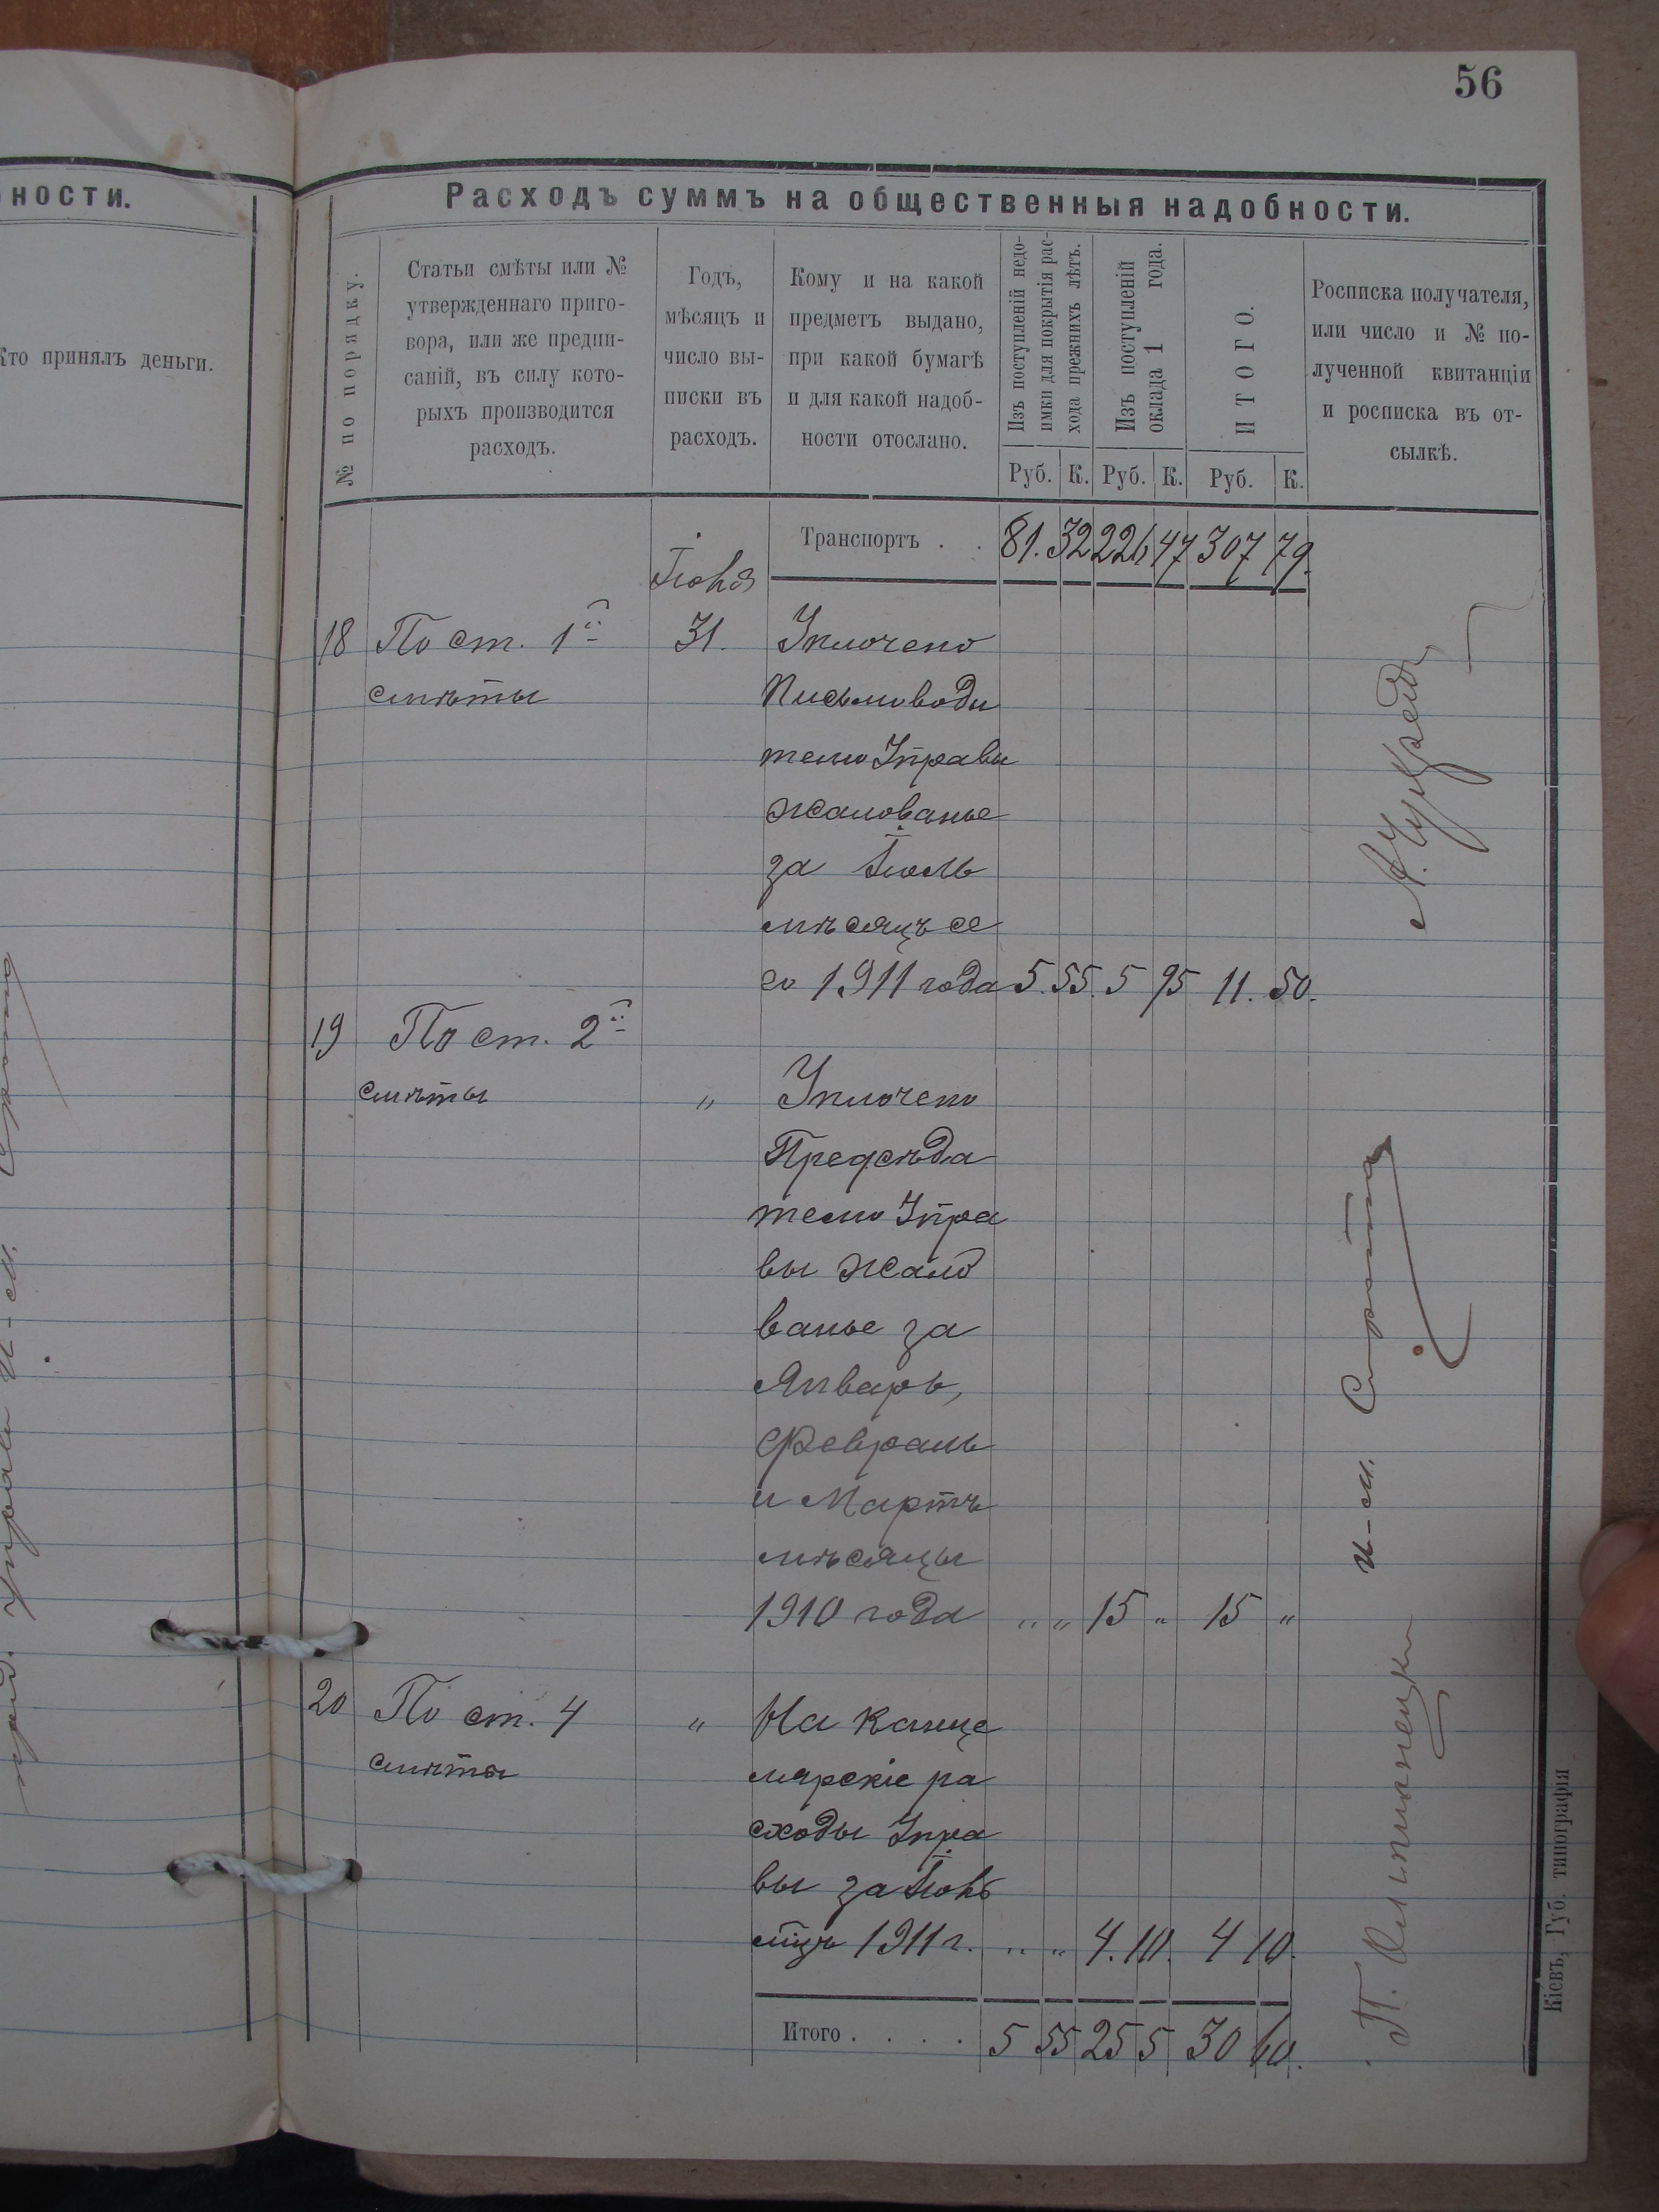 56
ности.
Кто принялъ деньги.
Расходъ суммъ на общественныя надобности.
№ по порядку.
Статьи смѣты или №
утвержденнаго приго-
вора, или же предпи-
саній, въ силу кото-
рыхъ производится
расходъ.
Годъ,
мѣсяцъ и
число вы-
писки въ
расходъ.
Кому и на какой
предметъ выдано,
при какой бумагѣ
и для какой надоб-
ности отослано.
Изъ поступленій недо-
имки для покрытія рас-
хода прежнихъ лѣтъ.
Изъ поступленій
оклада 1 года.
ИТОГО.
Росписка получателя,
или число и № по-
лученной квитанціи
и росписка въ от-
сылкѣ.
Руб. К. Руб. К. Руб. К.
Транспортъ . . 81. 32 226 47 307 79.
18 По ст. 1й 31. Уплочено
смѣты Письмоводи
телю Управы
жалованье
за Іюль
мѣсяцъ се
го 1911 года 5. 55. 5 95 11. 50.
19 По ст. 2й
смѣты „ Уплочено
Предсѣда
телю Упра
вы жало
ванье за
Январь,
Февраль
и Мартъ
мѣсяцы
1910 года „ „ 15 „ 15 „
20 По ст. 4 „ На канце
смѣты лярскіе ра
сходы Упра
вы за
мцъ 1911 г. „ „ 4. 10. 4 10.
Итого . . . . 5 55 25 5 30 60.
И-М. Сирота
Кіевъ, Губ. типографія